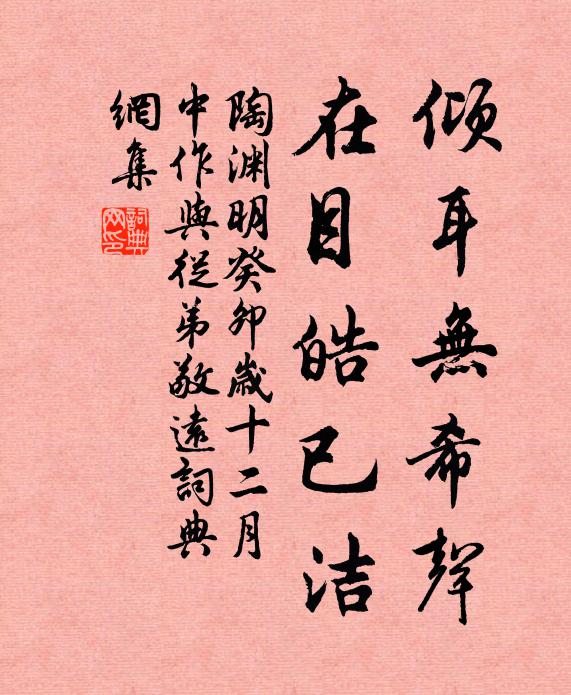 傾耳無希聲
在目皓已洁
陶渊明癸卯歲十二月
中作與從弟敬遠詞典
網集
詞典
网印